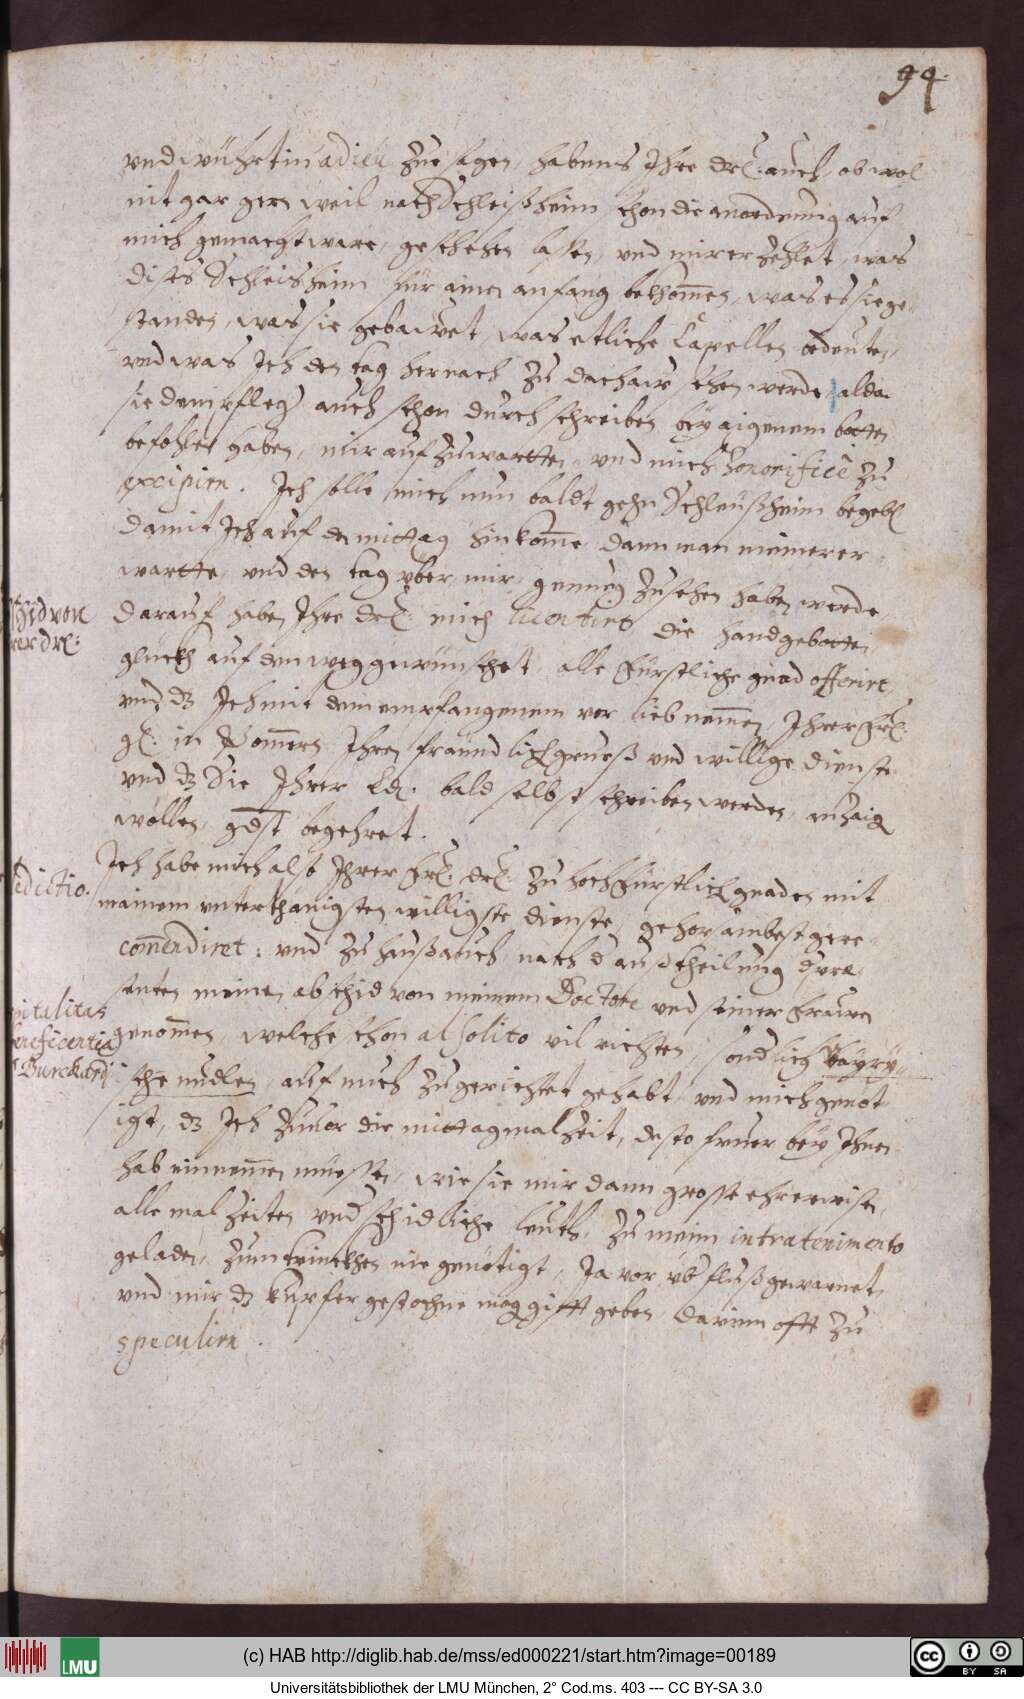 94.
vnd vnühetin adieu zue sagen, habens Ihre Drl: auch, ob wol
nit gar gern weil nach Schleißheim schon die anordnung auf
mich gemacht ware, geschehen lassen, vnd mir erzehlet, was
dises Schleisheim für ainen anfang bekhom̄en, was es sie ge-
standen, was sie gebawet, was etliche Capellen bedeuten,
vnd was Ich den tag hernach zu Dachaw sehen werde, alda
sie dem pfleger auch schon durch schreiben bey aigenem botten
befohlen haben, mir aufzuwartten, vnd mich honorificè zu
excipirn. Ich solle mich nun baldt gehn Schleußheim begebē
damit Ich auf den mittag hinkom̄e, dann man meiner er-
wartte, vnd den tag vber mir genueg zusehen haben werde,
Abschid von
Irer Drl:
Darauf haben Ihre Drl: mich licentirt die hand gebotten,
glückh auf den weg gewünschet, alle fürstliche gnad offerirt,
vnd dz Ich mit dem empfangenem vor lieb nem̄en, Ihrer Frl:
Gl: in Pom̄ern Ihren freundlich grueß vnd willige dienste
vnd dz Sie Ihrer Ld: bald selbst schreiben werden, anzaigē
wöllen, gdst begehret.
edictio.
Ich habe mich also Ihrer Frl: Drl: zu hochfürstlich gnaden mit
meinem vnterthänigsten willigste dienste, gehorsambest gere-
com̄endiret: vnd zu hauß auch, nach d außtheilung d præ-
senten meinen abschid von meinem Doctore vnd seiner Frauen
pitalitas
beneficentia
Burckardj
genom̄en, welche schon al solito vil richten, sondlich bäyri-
sche nudlen, auf mich zugerichtet gehabt, vnd mich genöt-
igt, dz Ich zuuor die mittagmalzeit, desto fruer bey Ihnen
hab einnem̄en müessen, wie sie mir dann grosse ehr erwisen,
alle malzeiten vnderschidliche leuth, zu meinem intratenimento
geladen, zum trinckhen nie genötigt, Ja vor vbrfluß gewarnet,
vnd mir dz kupfer gestochne magn gifft geben, darinn offt zu
speculirn.
(c) HAB http://diglib.hab.de/mss/ed000221/start.htm?image=00189
LMU
CC BY SA
Universitätsbibliothek der LMU München, 2° Cod.ms. 403 --- CC BY-SA 3.0